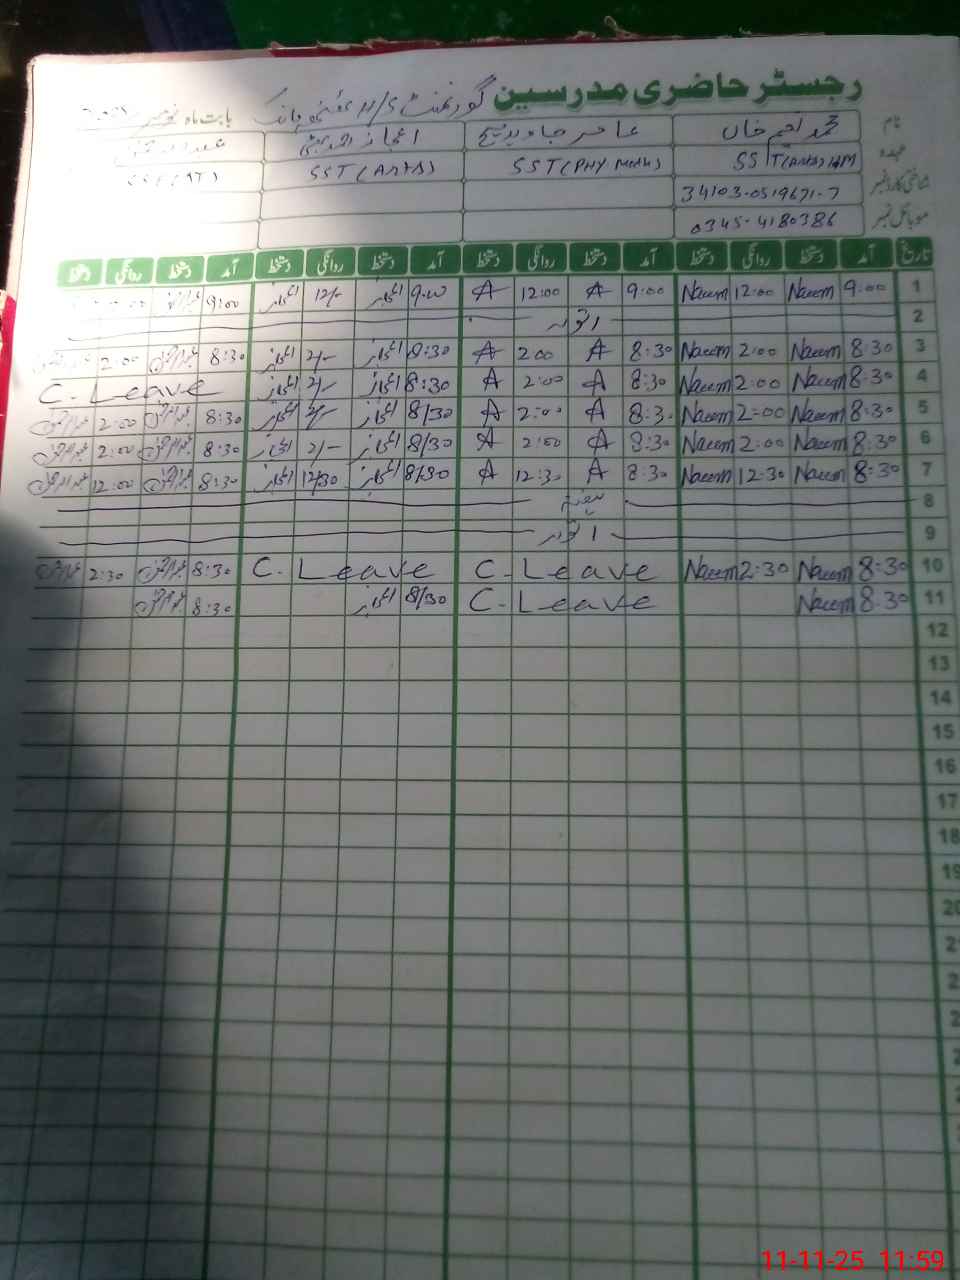 رجسٹر حاضری مدرسین گورنمنٹ H/S بابت ماہ نومبر
نام محمد نعیم خان عامر جاوید اعجاز احمد
عہدہ SST(Arts) HM SST(PHY Math) SST(Arts)
شناختی کارڈ نمبر 34103-0519671-7
موبائل نمبر 0345-4180386
تاریخ آمد دستخط روانگی دستخط آمد دستخط روانگی دستخط آمد دستخط روانگی دستخط آمد دستخط روانگی دستخط
1 9:00 Naeem 12:00 Naeem 9:00 A 12:00 A 9:00 اعجاز 12/- اعجاز 9:00
2 اتوار
3 8:30 Naeem 2:00 Naeem 8:30 A 2:00 A 8:30 اعجاز 2/- اعجاز 8:30 2:00
4 8:30 Naeem 2:00 Naeem 8:30 A 2:00 A 8:30 اعجاز 2/- اعجاز C. Leave
5 8:30 Naeem 2:00 Naeem 8:30 A 2:00 A 8/30 اعجاز 2/- اعجاز 8:30 2:00
6 8:30 Naeem 2:00 Naeem 8:30 A 2:00 A 8/30 اعجاز 2/- اعجاز 8:30 2:00
7 8:30 Naeem 12:30 Naeem 8:30 A 12:30 A 8/30 اعجاز 12/30 اعجاز 8:30 12:00
8 ہفتہ
9 اتوار
10 8:30 Naeem 2:30 Naeem C. Leave C. Leave 8:30 2:30
11 8:30 Naeem C. Leave 8/30 اعجاز 8:30
12
13
14
15
16
17
18
19
20
11-11-25 11:59